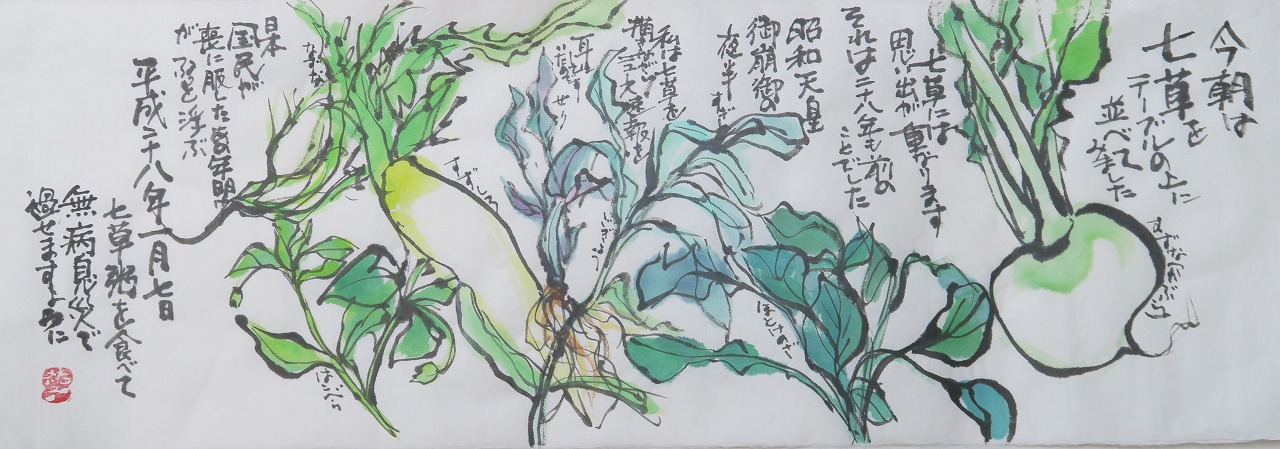 今朝は
七草を
テーブルの上に
並べて
みました
すずな(かぶ)
七草には
思い出が重なります
それは二十八年も前の
ことでした
ほとけのざ
昭和天皇
御崩御の
夜半すぎ
私は七草を
描きながら
大速報を
耳に
せり
すずしろ
なずな
はこべら
日本
国民が
喪に服した
が
ふと浮ぶ
平成二十八年一月七日
七草粥を食べて
無病息災で
過せますように